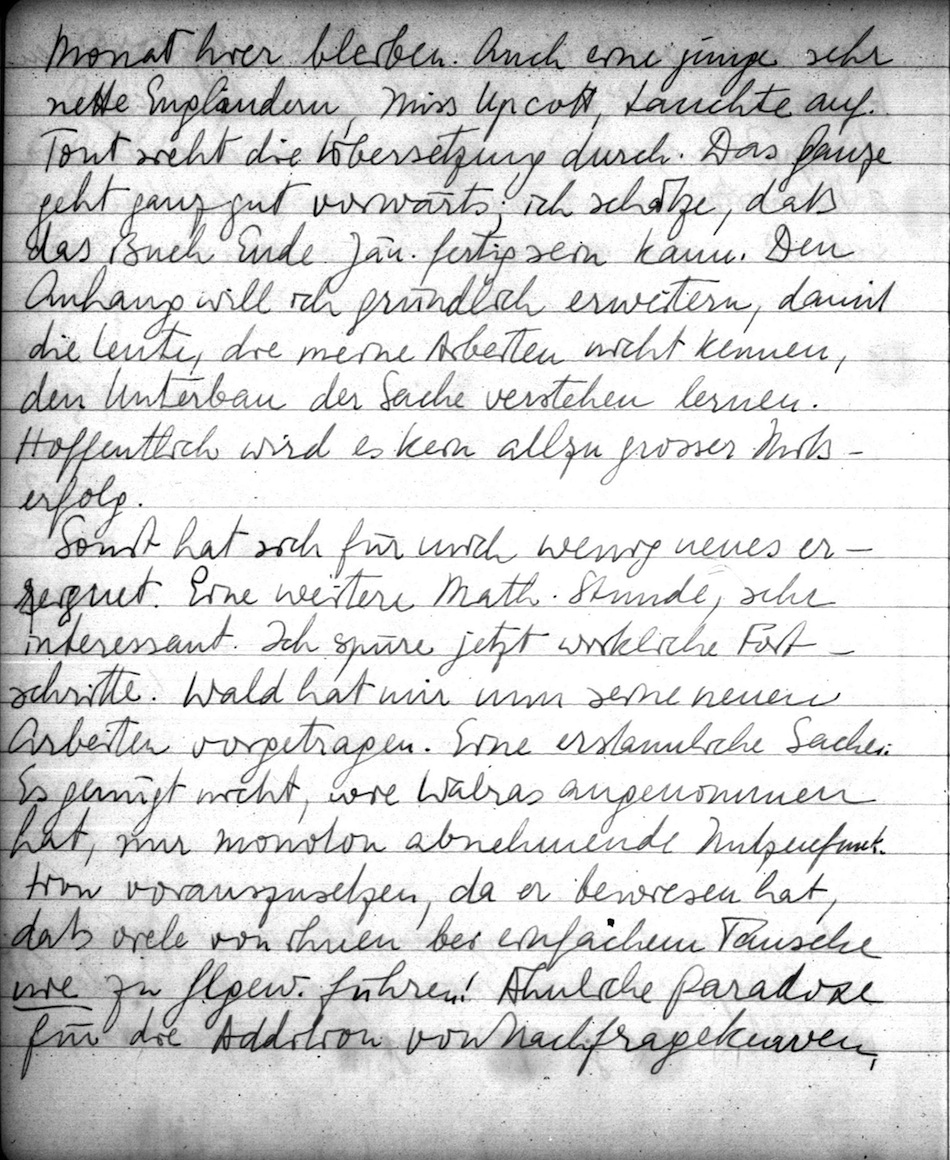 Monat hier bleiben. Auch eine junge sehr
nette Engländerin, Miss Upcott, tauchte auf.
Tont sieht die Übersetzung durch. Das ganze
geht ganz gut vorwärts; ich schätze, daß
das Buch Ende Jän. fertig sein kann. Den
Anhang will ich gründlich erweitern, damit
die Leute, die meine Arbeiten nicht kennen,
den Unterbau der Sache verstehen lernen.
Hoffentlich wird es kein allzu grosser Miß-
erfolg.
Sonst hat sich für mich wenig neues er-
eignet. Eine weitere Math. Stunde, sehr
interessant. Ich spüre jetzt wirkliche Fort-
schritte. Wald hat mir nun seine neuen
Arbeiten vorgetragen. Eine erstaunliche Sache.
Es genügt nicht, wie Walras angenommen
hat, nur monoton abnehmende Nutzenfunk-
tion vorauszusetzen, da er bewiesen hat,
daß viele von ihnen bei einfachem Tausche
nie zu Glgew. führen! Ähnliche Paradoxe
für die Addition von Nachfragekurven,